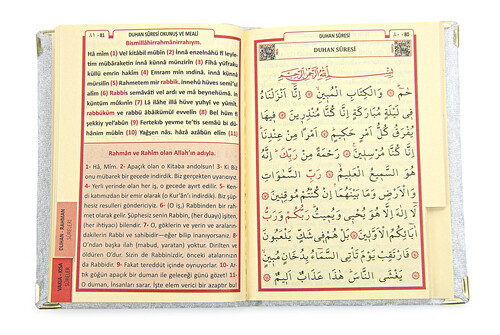 ٨١ - 81
DUHAN SÛRESİ OKUNUŞ VE MEALİ
Bismillâhirrahmânirrahıym.
Hâ mîm (1) Vel kitâbil mübîn (2) İnnâ enzelnâhü fî leyle-
tim mübâraketin innâ künnâ münzirîn (3) Fîhâ yüfraku
küllü emrin hakîm (4) Emram min ındinâ, innâ künnâ
mürsilîn (5) Rahmetem mir rabbik, innehû hüves semîul
alîm (6) Rabbis semâvâti vel ardı ve mâ beynehümâ, in
küntüm mûkınîn (7) Lâ ilâhe illâ hüve yuhyî ve yümît,
rabbüküm ve rabbü âbâikümül evvelîn (8) Bel hüm fî
şekkiy yel'abûn (9) Fertekıb yevme te'tis semâü bi dü-
hânim mübîn (10) Yağşen nâs, hâzâ azâbün elîm (11)
Rahmân ve Rahîm olan Allah'ın adıyla.
1- Hâ, Mîm. 2- Apaçık olan o Kitaba andolsun! 3- Ki Biz
onu mübarek bir gecede indirdik. Biz gerçekten uyarıcıyız.
4- Yerli yerinde olan her iş, o gecede ayırt edilir. 5- Ken-
di katımızdan bir emir olarak (o Kur'ân'ı indirdik). Biz şüp-
hesiz resulleri göndericiyiz. 6- (O iş,) Rabbinden bir rah-
met olarak gelir. Şüphesiz senin Rabbin, (her duayı) işiten,
(her ihtiyacı) bilendir. 7- O, göklerin ve yerin ve araların-
dakilerin Rabbi ve sahibidir—eğer bilip inanıyorsanız. 8-
O'ndan başka ilah (mabud, yaratan) yoktur. Dirilten ve
öldüren O'dur. Sizin de Rabbinizdir, önceki atalarınızın
da Rabbidir. 9- Fakat tereddüt içinde oynuyorlar. 10- Ar-
tık göğün apaçık bir duman ile geleceği günü gözet! 11-
O duman, insanları sarar. İşte elem verici bir azaptır bu!
DUHAN - RAHMAN
SÛRELERİ
VAKIA - KISA
SÛRELER
DUHAN SÛRESİ
٨٠ - 80
DUHAN SÛRESİ
بِسْمِ اللّٰهِ الرَّحْمٰنِ الرَّحِيمِ
حٰمٓ ۞ وَالْكِتَابِ الْمُبِينِ ۞ اِنَّٓا اَنْزَلْنَاهُ
فِى لَيْلَةٍ مُبَارَكَةٍ اِنَّا كُنَّا مُنْذِرِينَ ۞ فِيهَا
يُفْرَقُ كُلُّ اَمْرٍ حَكِيمٍ ۞ اَمْرًا مِنْ عِنْدِنَا
اِنَّا كُنَّا مُرْسِلِينَ ۞ رَحْمَةً مِنْ رَبِّكَ اِنَّهُ
هُوَ السَّمِيعُ الْعَلِيمُ ۞ رَبِّ السَّمٰوَاتِ
وَالْاَرْضِ وَمَا بَيْنَهُمَا اِنْ كُنْتُمْ مُوقِنِينَ ۞
لَٓا اِلٰهَ اِلَّا هُوَ يُحْيِى وَيُمِيتُ رَبُّكُمْ وَرَبُّ
اٰبَٓائِكُمُ الْاَوَّلِينَ ۞ بَلْ هُمْ فِى شَكٍّ يَلْعَبُونَ ۞
فَارْتَقِبْ يَوْمَ تَأْتِى السَّمَٓاءُ بِدُخَانٍ مُبِينٍ ۞
يَغْشَى النَّاسَ هٰذَا عَذَابٌ اَلِيمٌ ۞